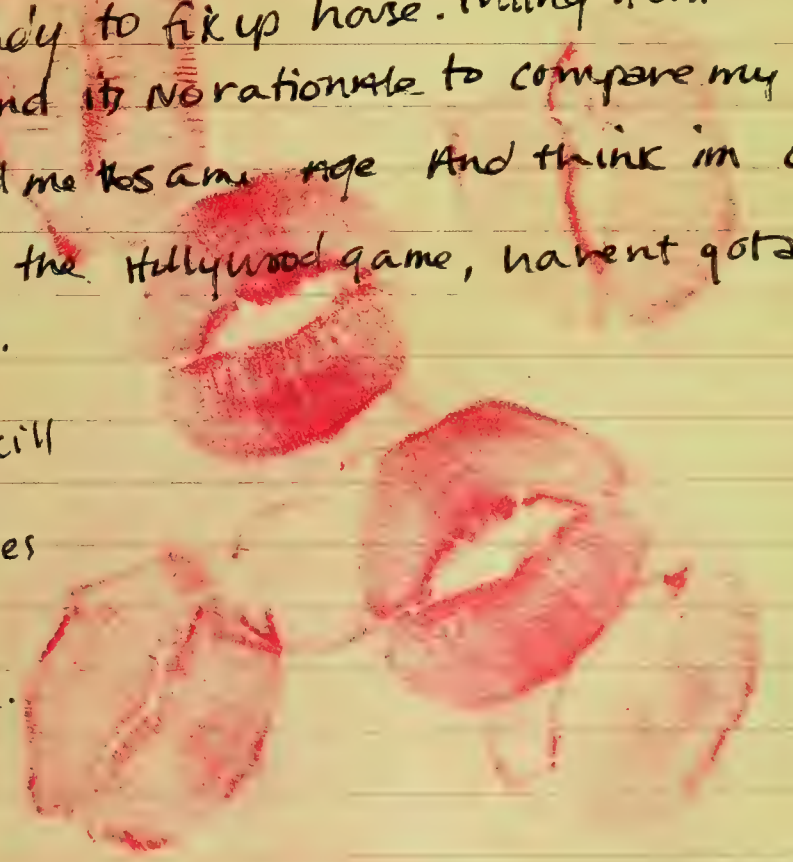 dy to fix up house.
nd its No rationale to compare my
d me the same Age And think im
the Hollywood game, havent got a
.
kill
es
.